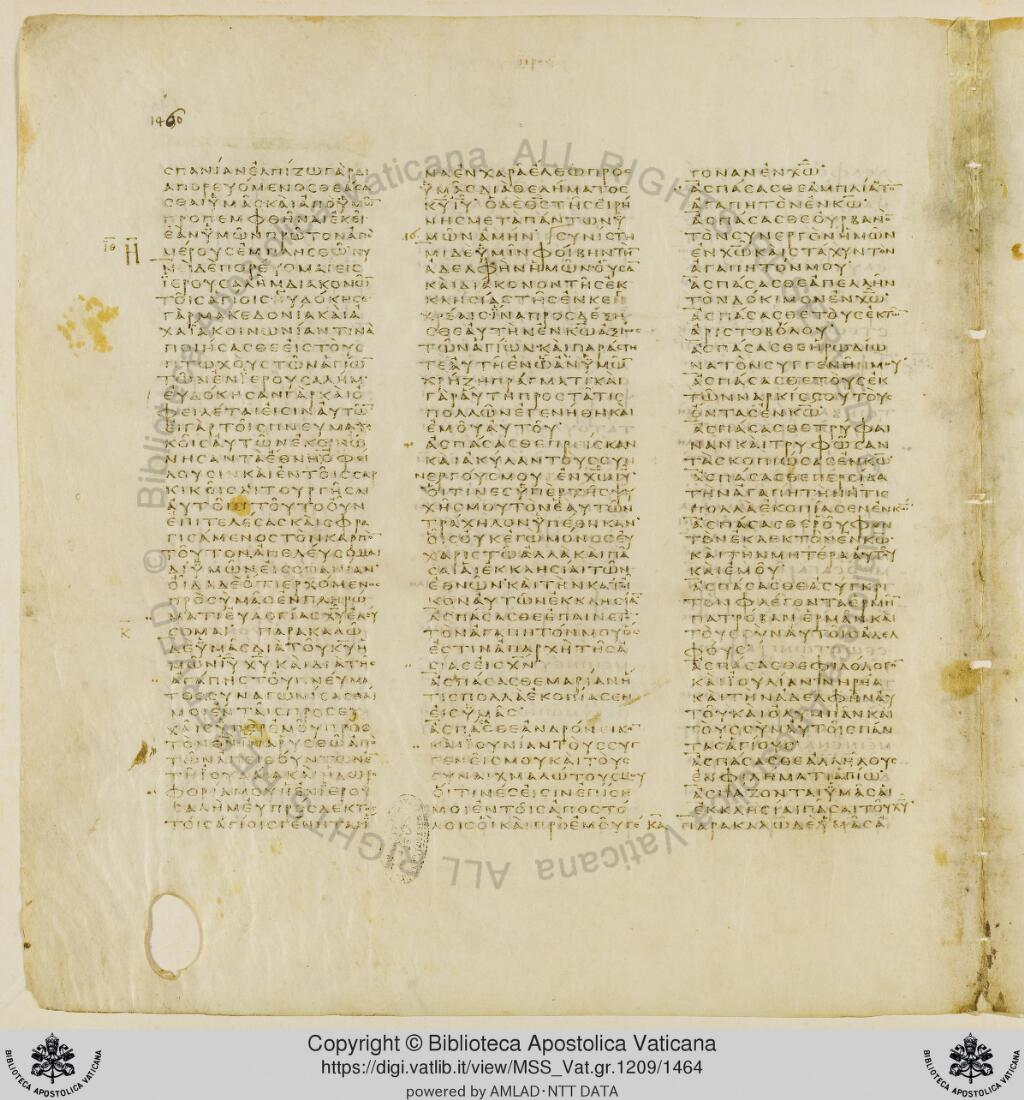 1460
ϹΠΑΝΙΑΝΕΛΠΙΖΩΓΑΡΔΙ
ΑΠΟΡΕΥΟΜΕΝΟϹΘΕΑϹΑ
ϹΘΑΙΥΜΑϹΚΑΙΑΠΟΥΜΩ̅
ΠΡΟΠΕΜΦΘΗΝΑΙΕΚΕΙ
ΕΑΝΥΜΩΝΠΡΩΤΟΝΑΠΟ
ΜΕΡΟΥϹΕΜΠΛΗϹΘΩΝΥ
ΝΙΔΕΠΟΡΕΥΟΜΑΙΕΙϹ
ΙΕΡΟΥϹΑΛΗΜΔΙΑΚΟΝΩ̅
ΤΟΙϹΑΓΙΟΙϹΗΥΔΟΚΗϹΕ̅
ΓΑΡΜΑΚΕΔΟΝΙΑΚΑΙΑ
ΧΑΙΑΚΟΙΝΩΝΙΑΝΤΙΝΑ
ΠΟΙΗϹΑϹΘΕΕΙϹΤΟΥϹ
ΠΤΩΧΟΥϹΤΩΝΑΓΙΩ̅
ΤΩΝΕΝΙΕΡΟΥϹΑΛΗΜ
ΕΥΔΟΚΗϹΑΝΓΑΡΚΑΙΟ
ΦΕΙΛΕΤΑΙΕΙϹΙΝΑΥΤΩ̅
ΕΙΓΑΡΤΟΙϹΠΝΕΥΜΑΤΙ
ΚΟΙϹΑΥΤΩΝΕΚΟΙΝΩ
ΝΗϹΑΝΤΑΕΘΝΗΟΦΕΙ
ΛΟΥϹΙΝΚΑΙΕΝΤΟΙϹϹΑΡ
ΚΙΚΟΙϹΛΙΤΟΥΡΓΗϹΑΙ
ΑΥΤΟΙϹΤΟΥΤΟΟΥΝ
ΕΠΙΤΕΛΕϹΑϹΚΑΙϹΦΡΑ
ΓΙϹΑΜΕΝΟϹΤΟΝΚΑΡΠΟ̅
ΤΟΥΤΟΝΑΠΕΛΕΥϹΟΜΑΙ
ΔΙΥΜΩΝΕΙϹϹΠΑΝΙΑΝ
ΟΙΔΑΔΕΟΤΙΕΡΧΟΜΕΝΟϹ
ΠΡΟϹΥΜΑϹΕΝΠΛΗΡΩ
ΜΑΤΙΕΥΛΟΓΙΑϹΧ̅Υ̅ΕΛΕΥ
ϹΟΜΑΙ ΠΑΡΑΚΑΛΩ
ΔΕΥΜΑϹΔΙΑΤΟΥΚ̅Υ̅Η
ΜΩΝΙ̅Υ̅Χ̅Υ̅ΚΑΙΔΙΑΤΗϹ
ΑΓΑΠΗϹΤΟΥΠΝΕΥΜΑ
ΤΟϹϹΥΝΑΓΩΝΙϹΑϹΘΑΙ
ΜΟΙΕΝΤΑΙϹΠΡΟϹΕΥ
ΧΑΙϹΥΠΕΡΕΜΟΥΠΡΟϹ
ΤΟΝΘ̅Ν̅ΙΝΑΡΥϹΘΩΑΠΟ
ΤΩΝΑΠΕΙΘΟΥΝΤΩΝΕ̅
ΤΗΙΟΥΔΑΙΑΚΑΙΗΔΩΡΟ
ΦΟΡΙΑΜΟΥΗΕΝΙΕΡΟΥ
ϹΑΛΗΜΕΥΠΡΟϹΔΕΚΤΟϹ
ΤΟΙϹΑΓΙΟΙϹΓΕΝΗΤΑΙΙ
ΝΑΕΝΧΑΡΑΕΛΘΩΠΡΟϹ
ΥΜΑϹΔΙΑΘΕΛΗΜΑΤΟϹ
Κ̅Υ̅Ι̅Υ̅ ΟΔΕΘ̅Ϲ̅ΤΗϹΕΙΡΗ
ΝΗϹΜΕΤΑΠΑΝΤΩΝΥ
ΜΩΝΑΜΗΝ ϹΥΝΙϹΤΗ
ΜΙΔΕΥΜΙΝΦΟΙΒΗΝΤΗ̅
ΑΔΕΛΦΗΝΗΜΩΝΟΥϹΑ̅
ΚΑΙΔΙΑΚΟΝΟΝΤΗϹΕΚ
ΚΛΗϹΙΑϹΤΗϹΕΝΚΕΝ
ΧΡΕΑΙϹΙΝΑΠΡΟϹΔΕΞΗ
ϹΘΕΑΥΤΗΝΕΝΚ̅Ω̅ΑΞΙΩϹ
ΤΩΝΑΓΙΩΝΚΑΙΠΑΡΑϹΤΗ
ΤΕΑΥΤΗΕΝΩΑΝΥΜΩ̅
ΧΡΗΖΗΠΡΑΓΜΑΤΙΚΑΙ
ΓΑΡΑΥΤΗΠΡΟϹΤΑΤΙϹ
ΠΟΛΛΩΝΕΓΕΝΗΘΗΚΑΙ
ΕΜΟΥΑΥΤΟΥ
ΑϹΠΑϹΑϹΘΕΠΡΕΙϹΚΑΝ
ΚΑΙΑΚΥΛΑΝΤΟΥϹϹΥΝ
ΕΡΓΟΥϹΜΟΥ ΕΝΧ̅Ω̅Ι̅Υ̅
ΟΙΤΙΝΕϹΥΠΕΡΤΗϹΨΥ
ΧΗϹΜΟΥΤΟΝΕΑΥΤΩΝ
ΤΡΑΧΗΛΟΝΥΠΕΘΗΚΑΝ
ΟΙϹΟΥΚΕΓΩΜΟΝΟϹΕΥ
ΧΑΡΙϹΤΩΑΛΛΑΚΑΙΠΑ
ϹΑΙΑΙΕΚΚΛΗϹΙΑΙΤΩΝ
ΕΘΝΩΝΚΑΙΤΗΝΚΑΤΟΙ
ΚΟΝΑΥΤΩΝΕΚΚΛΗϹΙΑ̅
ΑϹΠΑϹΑϹΘΕΕΠΑΙΝΕ
ΤΟΝΑΓΑΠΗΤΟΝΜΟΥΟϹ
ΕϹΤΙΝΑΠΑΡΧΗΤΗϹΑ
ϹΙΑϹΕΙϹΧ̅Ν̅
ΑϹΠΑϹΑϹΘΕΜΑΡΙΑΝΗ
ΤΙϹΠΟΛΛΑΕΚΟΠΙΑϹΕΝ
ΕΙϹΥΜΑϹ
ΑϹΠΑϹΑϹΘΕΑΝΔΡΟΝΕΙΚΟ̅
ΚΑΙΙΟΥΝΙΑΝΤΟΥϹϹΥΓ
ΓΕΝΕΙϹΜΟΥΚΑΙΤΟΥϹ
ϹΥΝΑΙΧΜΑΛΩΤΟΥϹΜΟΥ
ΟΙΤΙΝΕϹΕΙϹΙΝΕΠΙϹΗ
ΜΟΙΕΝΤΟΙϹΑΠΟϹΤΟ
ΛΟΙϹΟΙΚΑΙΠΡΟΕΜΟΥΓΕ
ΓΟΝΑΝΕΝΧ̅Ω̅
ΑϹΠΑϹΑϹΘΕΑΜΠΛΙΑΤΟ̅
ΑΓΑΠΗΤΟΝΕΝΚ̅Ω̅
ΑϹΠΑϹΑϹΘΕΟΥΡΒΑΝΟ̅
ΤΟΝϹΥΝΕΡΓΟΝΗΜΩΝ
ΕΝΧ̅Ω̅ΚΑΙϹΤΑΧΥΝΤΟΝ
ΑΓΑΠΗΤΟΝΜΟΥ
ΑϹΠΑϹΑϹΘΕΑΠΕΛΛΗΝ
ΤΟΝΔΟΚΙΜΟΝΕΝΧ̅Ω̅
ΑϹΠΑϹΑϹΘΕΤΟΥϹΕΚΤΩ̅
ΑΡΙϹΤΟΒΟΛΟΥ
ΑϹΠΑϹΑϹΘΕΗΡΩΔΙΩ
ΝΑΤΟΝϹΥΓΓΕΝΗΜΟΥ
ΑϹΠΑϹΑϹΘΕΤΟΥϹΕΚ
ΤΩΝΝΑΡΚΙϹϹΟΥΤΟΥϹ
ΟΝΤΑϹΕΝΚ̅Ω̅
ΑϹΠΑϹΑϹΘΕΤΡΥΦΑΙ
ΝΑΝΚΑΙΤΡΥΦΩϹΑΝ
ΤΑϹΚΟΠΙΩϹΑϹΕΝΚ̅Ω̅
ΑϹΠΑϹΑϹΘΕΠΕΡϹΙΔΑ
ΤΗΝΑΓΑΠΗΤΗΝΗΤΙϹ
ΠΟΛΛΑΕΚΟΠΙΑϹΕΝΕΝΚ̅Ω̅
ΑϹΠΑϹΑϹΘΕΡΟΥΦΟΝ
ΤΟΝΕΚΛΕΚΤΟΝΕΝΚ̅Ω̅
ΚΑΙΤΗΝΜΗΤΕΡΑΑΥΤΟΥ
ΚΑΙΕΜΟΥ
ΑϹΠΑϹΑϹΘΕΑϹΥΓΚΡΙ
ΤΟΝΦΛΕΓΟΝΤΑΕΡΜΗ̅
ΠΑΤΡΟΒΑΝΕΡΜΑΝΚΑΙ
ΤΟΥϹϹΥΝΑΥΤΟΙϹΑΔΕΛ
ΦΟΥϹ
ΑϹΠΑϹΑϹΘΕΦΙΛΟΛΟΓΟ̅
ΚΑΙΙΟΥΛΙΑΝΝΗΡΕΑ
ΚΑΙΤΗΝΑΔΕΛΦΗΝΑΥ
ΤΟΥΚΑΙΟΛΥΜΠΑΝΚΑΙ
ΤΟΥϹϹΥΝΑΥΤΟΙϹΠΑΝ
ΤΑϹΑΓΙΟΥϹ
ΑϹΠΑϹΑϹΘΕΑΛΛΗΛΟΥϹ
ΕΝΦΙΛΗΜΑΤΙΑΓΙΩ
ΑϹΠΑΖΟΝΤΑΙΥΜΑϹΑΙ
ΕΚΚΛΗϹΙΑΙΠΑϹΑΙΤΟΥΧ̅Υ̅
ΠΑΡΑΚΑΛΩΔΕΥΜΑϹΑ
Copyright © Biblioteca Apostolica Vaticana
https://digi.vatlib.it/view/MSS_Vat.gr.1209/1464
powered by AMLAD·NTT DATA